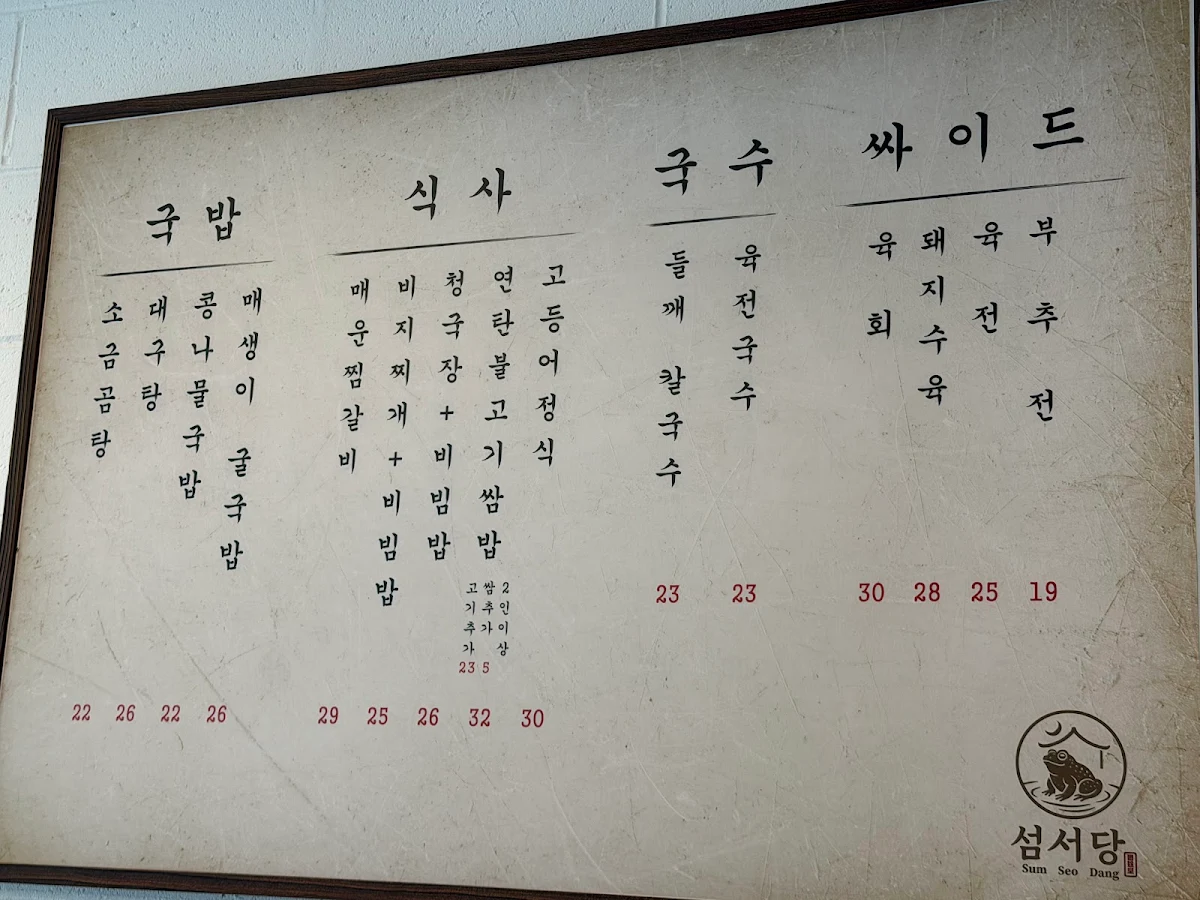 국밥
소금곰탕
대구탕
콩나물국밥
매생이 굴국밥
22 26 22 26
식사
매운찜갈비
비지찌개+비빔밥
청국장+비빔밥
연탄불고기쌈밥
고등어정식
2인이상
쌈추가
고기추가
23 5
29 25 26 32 30
국수
들깨 칼국수
육전국수
23 23
싸이드
육회
돼지수육
육전
부추전
30 28 25 19
섬서당
Sum Seo Dang